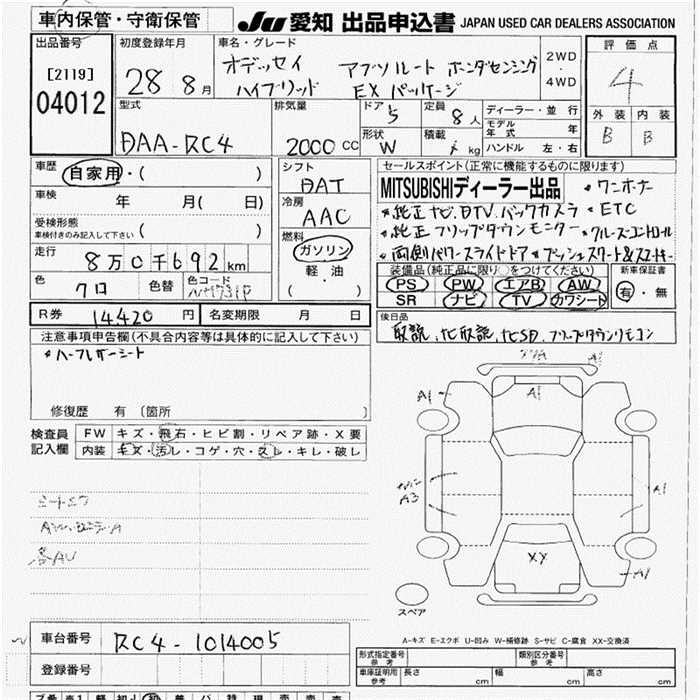 車内保管・守衛保管
JU 愛知 出品申込書 JAPAN USED CAR DEALERS ASSOCIATION
出品番号
[2119]
04012
初度登録年月
28 8月
車名・グレード
オデッセイ アブソルート ホンダセンシング
ハイブリッド EXパッケージ
2WD
・
4WD
評価点
4
外装 内装
B B
型式
DAA-RC4
排気量
2000 CC
ドア 5
形状 W
定員 8人
積載 kg
ディーラー・並行
モデル年式 年
ハンドル 左・右
車歴
自家用・( )
車検 年 月( 日)
受検形態
車検付きのみ記入して下さい ( )
走行
8万0千692km
色 クロ
色替
色コード
シフト
DAT
冷房
AAC
燃料
ガソリン
・
軽油
・
( )
セールスポイント(正常に機能するものに限ります)
MITSUBISHIディーラー出品 *ワンオーナー
*純正ナビ.DTV.バックカメラ *ETC
*純正フリップダウンモニター *クルーズコントロール
*両側パワースライドドア *プッシュスタート&スマートキー
装備品(純正品に限り○をつけてください)
PS PW エアB AW
SR ナビ TV カワシート
新車保証書
有・無
R券 14420円
名変期限 月 日
後日品
取説、ナビ取説、ナビSD、フリップダウンリモコン
注意事項申告欄(不具合内容等は具体的に記入して下さい)
*ハーフレザーシート
修復歴 有 〔箇所 〕
検査員
記入欄
FW キズ・飛石・ヒビ割・リペア跡・X要
内装 キズ・汚レ・コゲ・穴・スレ・キレ・破レ
A1
A1
A1
A3
A1
XX
A1
スペア
A-キズ E-エクボ U-凹み W-補修跡 S-サビ C-腐食 XX-交換済
車台番号 RC4-1014005
登録番号
形式指定番号
参考
類別区分番号
参考
車庫証明用
参考
長さ cm 幅 cm 高さ cm